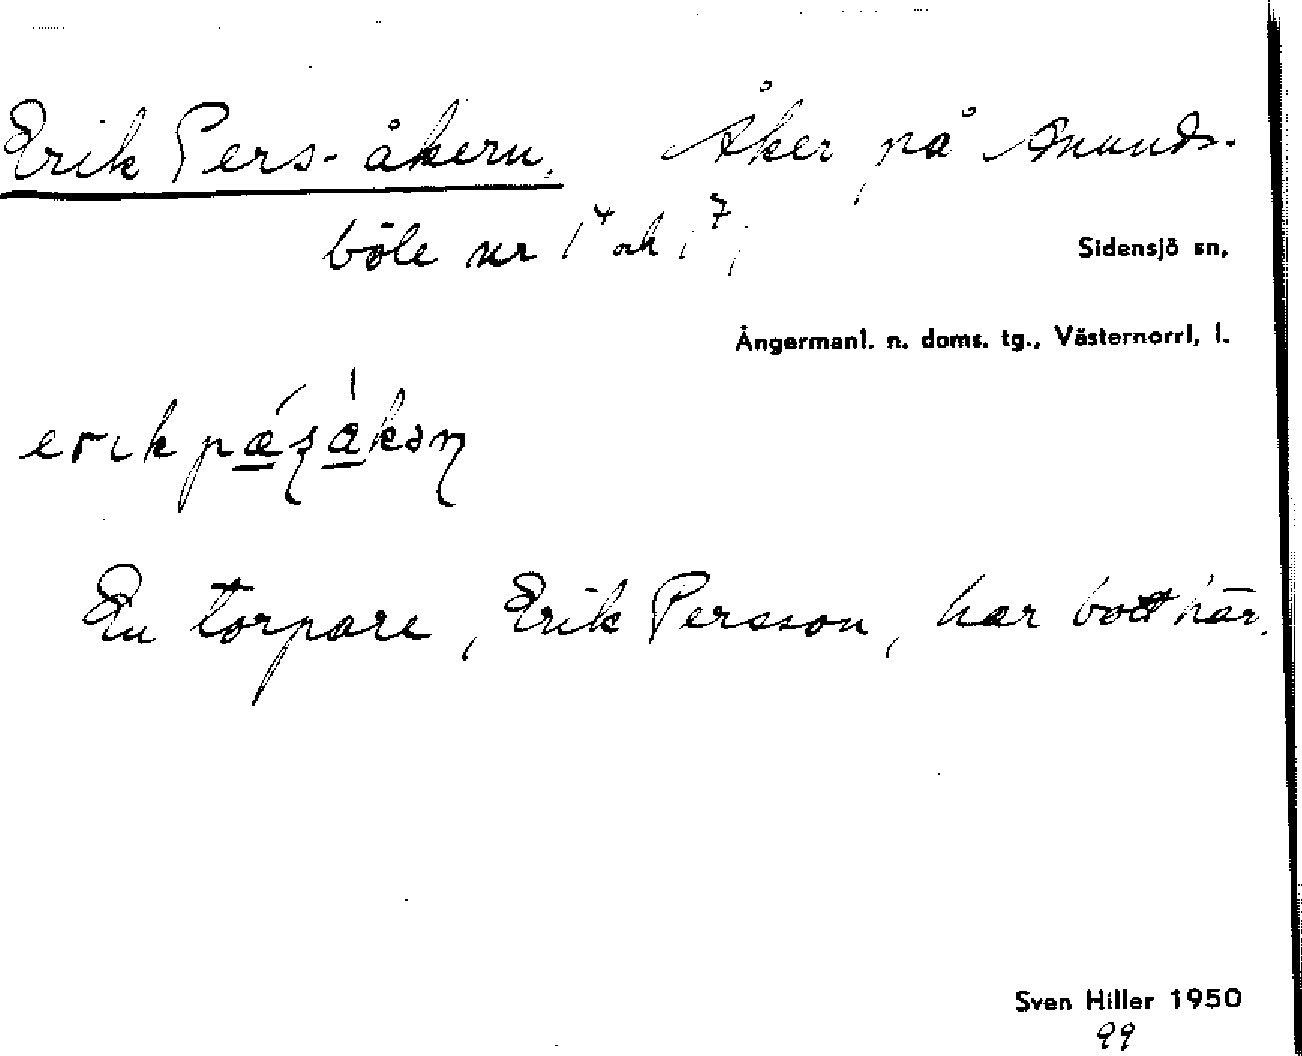 Erik Pers-åkern. Åker på Amunds-
böle nr 1⁴ och 1⁷;
Sidensjö sn,
Ångermanl. n. doms. tg., Västernorrl, l.
En torpare, Erik Persson, har bott här.
Sven Hiller 1950
99